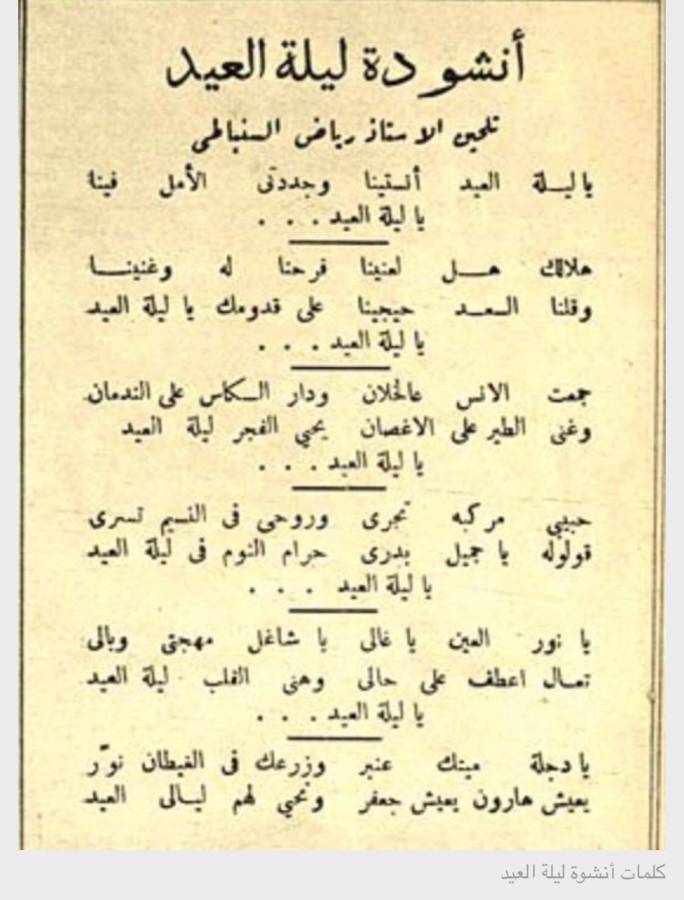 أنشودة ليلة العيد
تلحين الاستاذ رياض السنباطى
ياليلة العيد أنستينا وجددتى الأمل فينا
يا ليلة العيد . . .
هلالك هل لعنينا فرحنا له وغنينا
وقلنا السعد حيجينا على قدومك يا ليلة العيد
يا ليلة العيد . . .
جمعت الانس عالخلان ودار الكاس على الندمان
وغنى الطير على الاغصان يحيي الفجر ليلة العيد
يا ليلة العيد . . .
حبيبي مركبه تجرى وروحى فى النسيم تسرى
قولوله يا جميل بدرى حرام النوم فى ليلة العيد
يا ليلة العيد . . .
يا نور العين يا غالى يا شاغل مهجتى وبالى
تعال اعطف على حالى وهنى القلب ليلة العيد
يا ليلة العيد . . .
يا دجلة ميتك عنبر وزرعك فى الغيطان نوّر
يعيش هارون يعيش جعفر ونحيي لهم ليالى العيد
كلمات أنشوة ليلة العيد